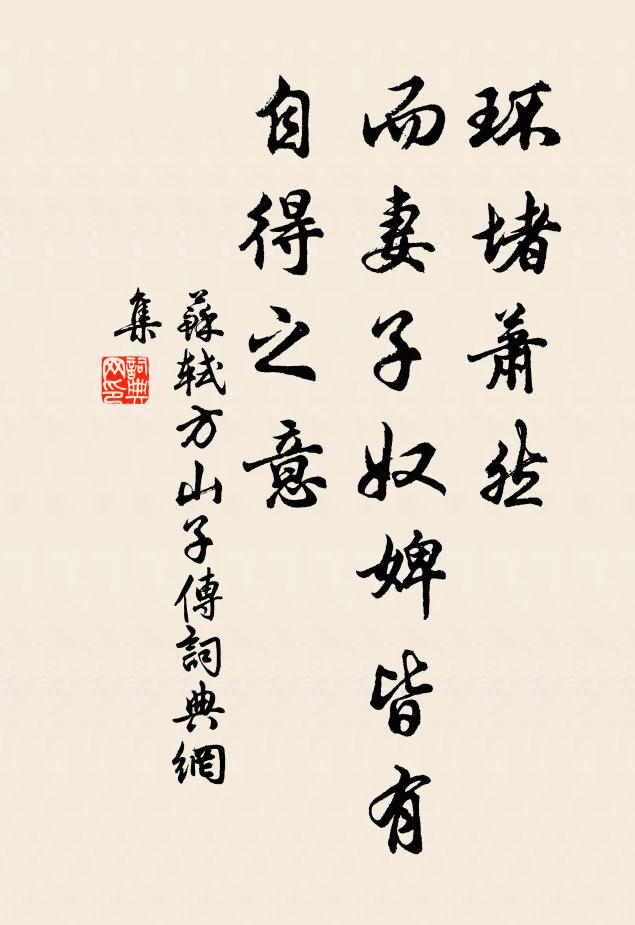 环堵蕭然
而妻子奴婢皆有
自得之意
蘇軾方山子傳詞典網
集
詞典
网印